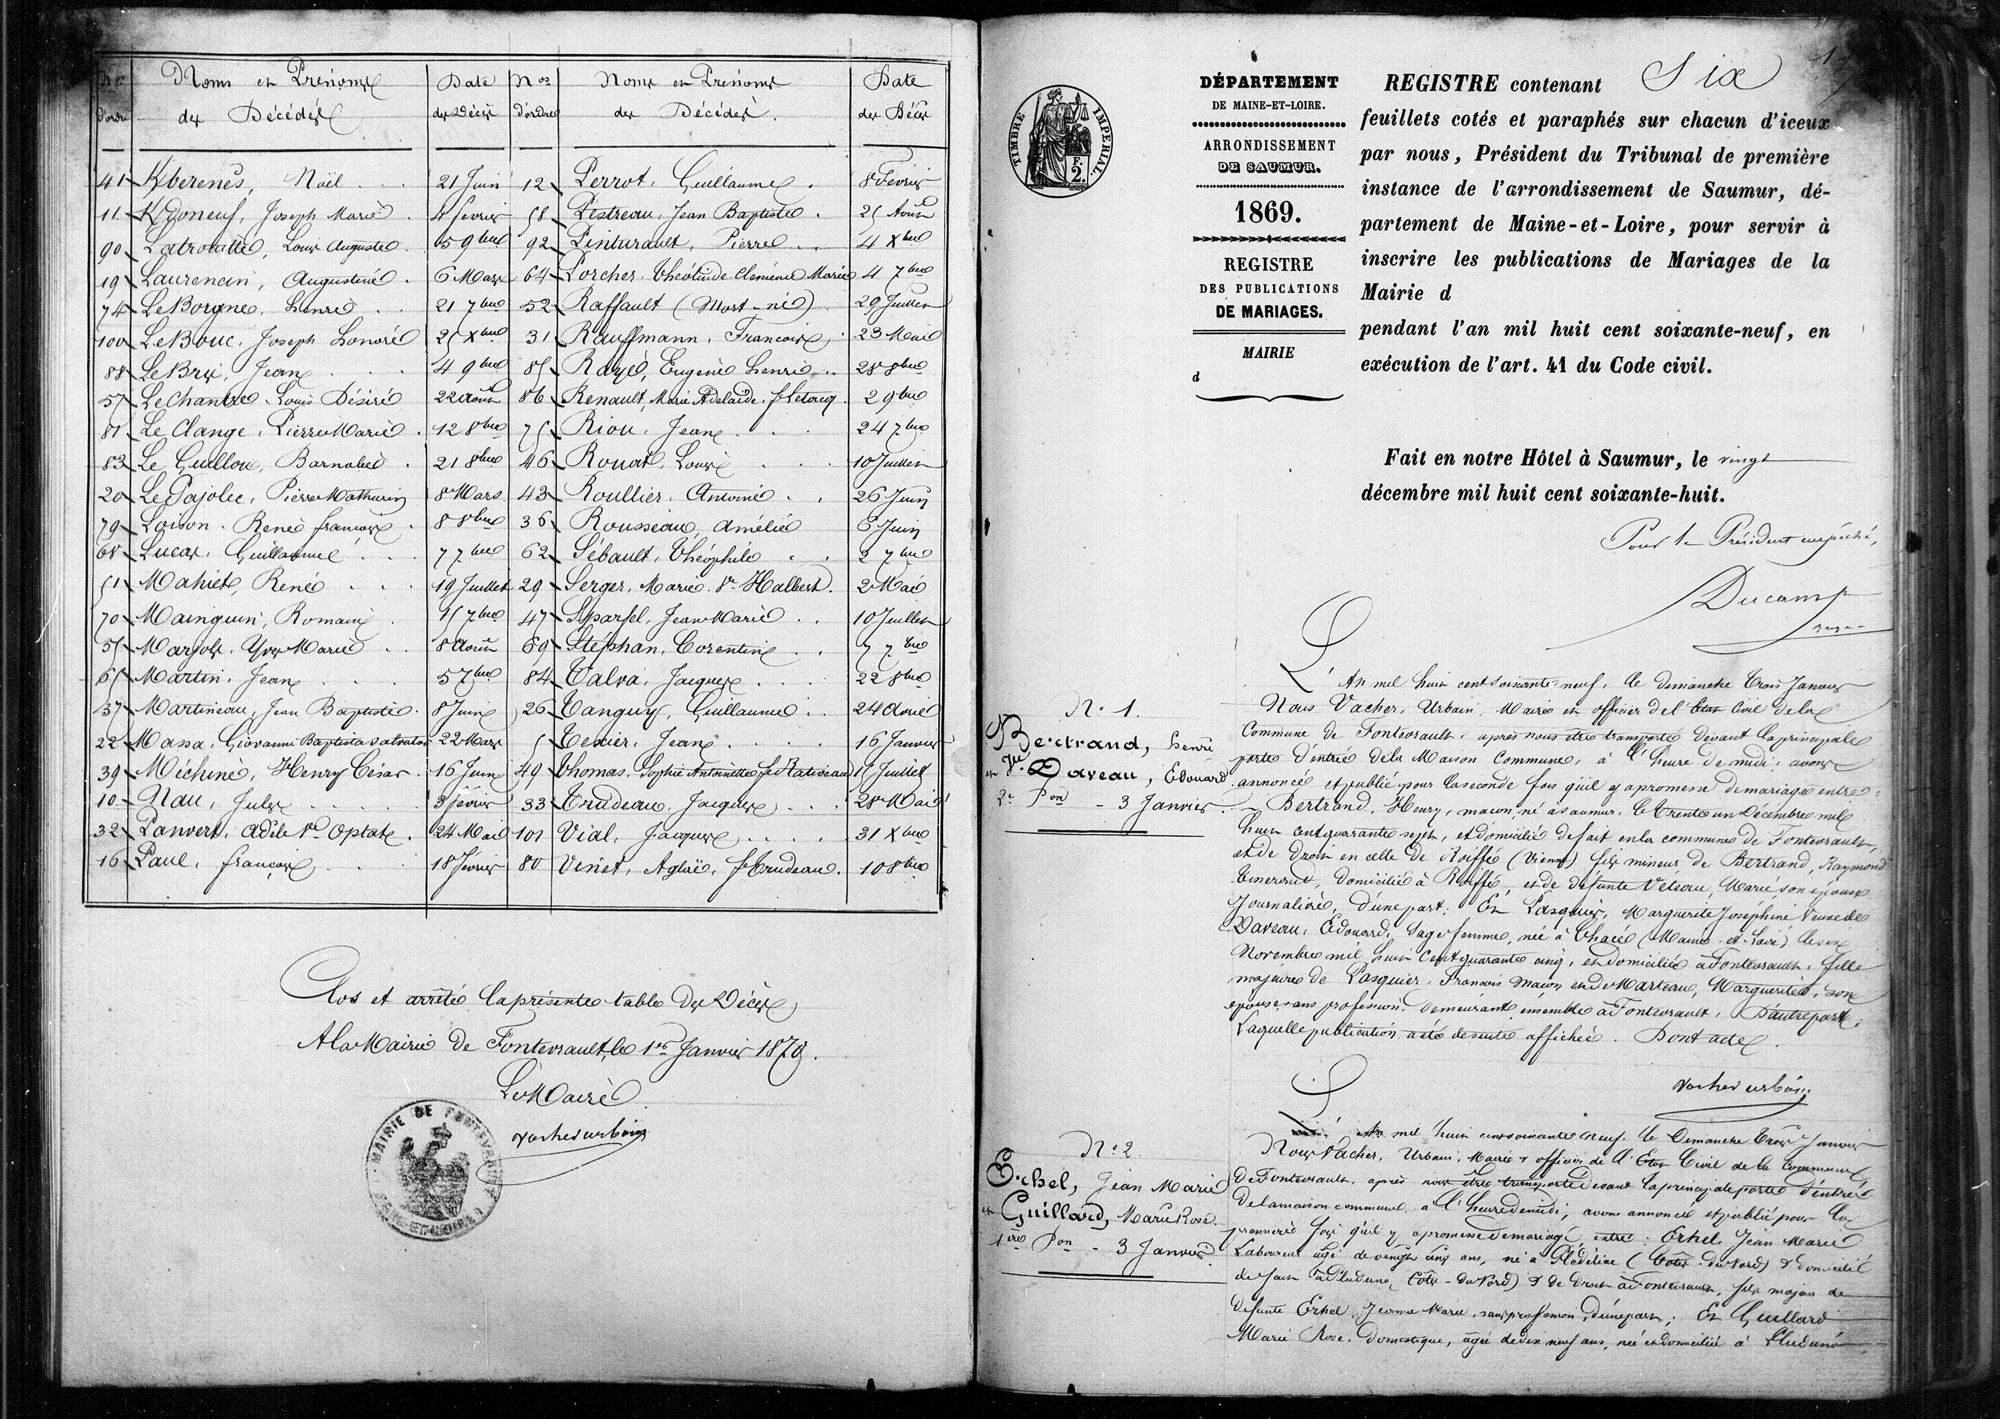 Nos d'ordre
Noms et Prénoms des Décédés
Date des Décès
Nos d'ordre
Noms et Prénoms des Décédés
Date des Décès
41 Kberenès, Noël . . 21 Juin
11 Kdoneuf, Joseph Marie . 4 février
90 Latrouitte, Louis Auguste . 5 9bre
19 Laurencin, Augustine . 6 Mars
74 Le Borgne, Henri . . 21 7bre
100 Le Bouc, Joseph Honoré 25 Xbre
88 Le Bris, Jean . . . 4 9bre
57 Le Chantre, Louis Désiré 22 août
81 Le Clange, Pierre Marie . 12 8bre
83 Le Guillou, Barnabé . 21 8bre
20 Le Pajolec, Pierre Mathurin 8 Mars
79 Loison, René françois . 8 8bre
68 Lucas, Guillaume . . 7 7bre
51 Mahiet, René . . . 19 Juillet
70 Mainguin, Romain . 15 7bre
55 Marjole, Yves Marie . . 8 Août
65 Martin, Jean . . . 5 7bre
37 Martineau, Jean Baptiste . 8 Juin
22 Massa, Giovanni Baptista Salvator 22 Mars
39 Méchine, Henry César . 16 Juin
10 Nau, Jules . . . 3 février
32 Panvert, Adèle Ve Optate . 24 Mai
16 Paul, françois . . . 18 février
12 Perrot, Guillaume . 8 Février
58 Pestreau, Jean Baptiste . 25 Août
92 Pinturault, Pierre . . 4 Xbre
64 Porcher, Théotinde Clemence Marie 4 7bre
52 Raffault (Mort-né) 29 Juillet
31 Rauffmann, François . 23 Mai
85 Rayé, Eugène Henri . . 28 8bre
86 Renault, Marie Adelaide, fe Letorcq . 2 9bre
75 Riou, Jean . . . 24 7bre
46 Rouat, Louis . . . 10 Juillet
43 Roullier, Antoine . . 26 Juin
36 Rousseau, Amélie 6 Juin
62 Sébault, Théophile . . 2 7bre
29 Serger, Marie, Ve Halbert . 2 Mai
47 Sparfel, Jean Marie . . 10 Juillet
69 Stéphan, Corentin . . 7 7bre
84 Talva, Jacques . . . 22 8bre
26 Tanguy, Guillaume . . 24 Avril
5 Texier, Jean . . . 16 Janvier
49 Thomas, Sophie Antoinette fe Rativeau 15 Juillet
33 Trudeau, Jacques . . 28 Mai
101 Vial, Jacques . . . 31 Xbre
80 Venet, Aglaë, fe Trudeau . 10 8bre
Clos et arrêté la présente table des Décès
A la Mairie de Fontevrault le 1er Janvier 1870.
Le Maire
Vacher urbain
MAIRIE DE FONTEVRAULT
TIMBRE IMPERIAL
F.
2.
DÉPARTEMENT
DE MAINE-ET-LOIRE.
ARRONDISSEMENT
DE SAUMUR.
1869.
REGISTRE
DES PUBLICATIONS
DE MARIAGES.
MAIRIE
d
REGISTRE contenant Six
feuillets cotés et paraphés sur chacun d'iceux
par nous, Président du Tribunal de première
instance de l'arrondissement de Saumur, dé-
partement de Maine-et-Loire, pour servir à
inscrire les publications de Mariages de la
Mairie d
pendant l'an mil huit cent soixante-neuf, en
exécution de l'art. 41 du Code civil.
Fait en notre Hôtel à Saumur, le vingt
décembre mil huit cent soixante-huit.
Pour le Président empêché,
Ducamp
juge
N° 1.
Bertrand, Henri
et Ve Daveau, Edouard
2e Pon - 3 Janvier.
L'An mil huit cent soixante-neuf, le dimanche trois Janvier
Nous Vacher, Urbain, Maire et officier de l'Etat Civil de la
Commune de Fontevrault, après nous être transporté devant la principale
porte d'entrée de la Maison Commune, à l'heure de midi, avons
annoncé et publié pour la seconde fois qu'il y a promesse de mariage entre:
Bertrand, Henry, maçon, né à Saumur, le trente un Décembre mil
huit cent quarante sept, et domicilié de fait en la commune de Fontevrault,
et de droit en celle de Roiffé (Vienne) fils mineur de Bertrand, Raymond
domicilié à Roiffé, et de défunte Véteau, Marie son épouse
Journalière, d'une part; Et Pasquier, Marguerite Joséphine Veuve de
Daveau, Edouard, sage-femme, née à Chacé (Maine-et-Loire) le six
Novembre mil huit cent quarante cinq, et domiciliée à Fontevrault, fille
majeure de Pasquier, François maçon et de Marteau, Marguerite, son
épouse sans profession, demeurant ensemble à Fontevrault, d'autre part;
Laquelle publication a été de suite affichée. Dont acte.
Vacher urbain
N° 2.
Erhel, Jean Marie
et Guillard, Marie Rose.
1ère Pon - 3 Janvier.
L'An mil huit cent soixante neuf, le Dimanche trois Janvier
Nous Vacher, Urbain, Maire & officier de l'Etat Civil de la Commune
de Fontevrault, après nous être transporté devant la principale porte d'entrée
de la maison commune, à l'heure de midi, avons annoncé et publié pour la
première fois qu'il y a promesse de mariage entre: Erhel, Jean Marie
Laboureur, âgé de vingt cinq ans, né à Plédéliac (Côtes-du-Nord) & domicilié
de fait à Pluduno, (Côtes-du-Nord) & de droit à Fontevrault, fils majeur de
défunte Erhel, Jeanne Marie, sans profession, d'une part; Et Guillard
Marie Rose, Domestique, âgée de dix neuf ans, née et domiciliée à Pluduno